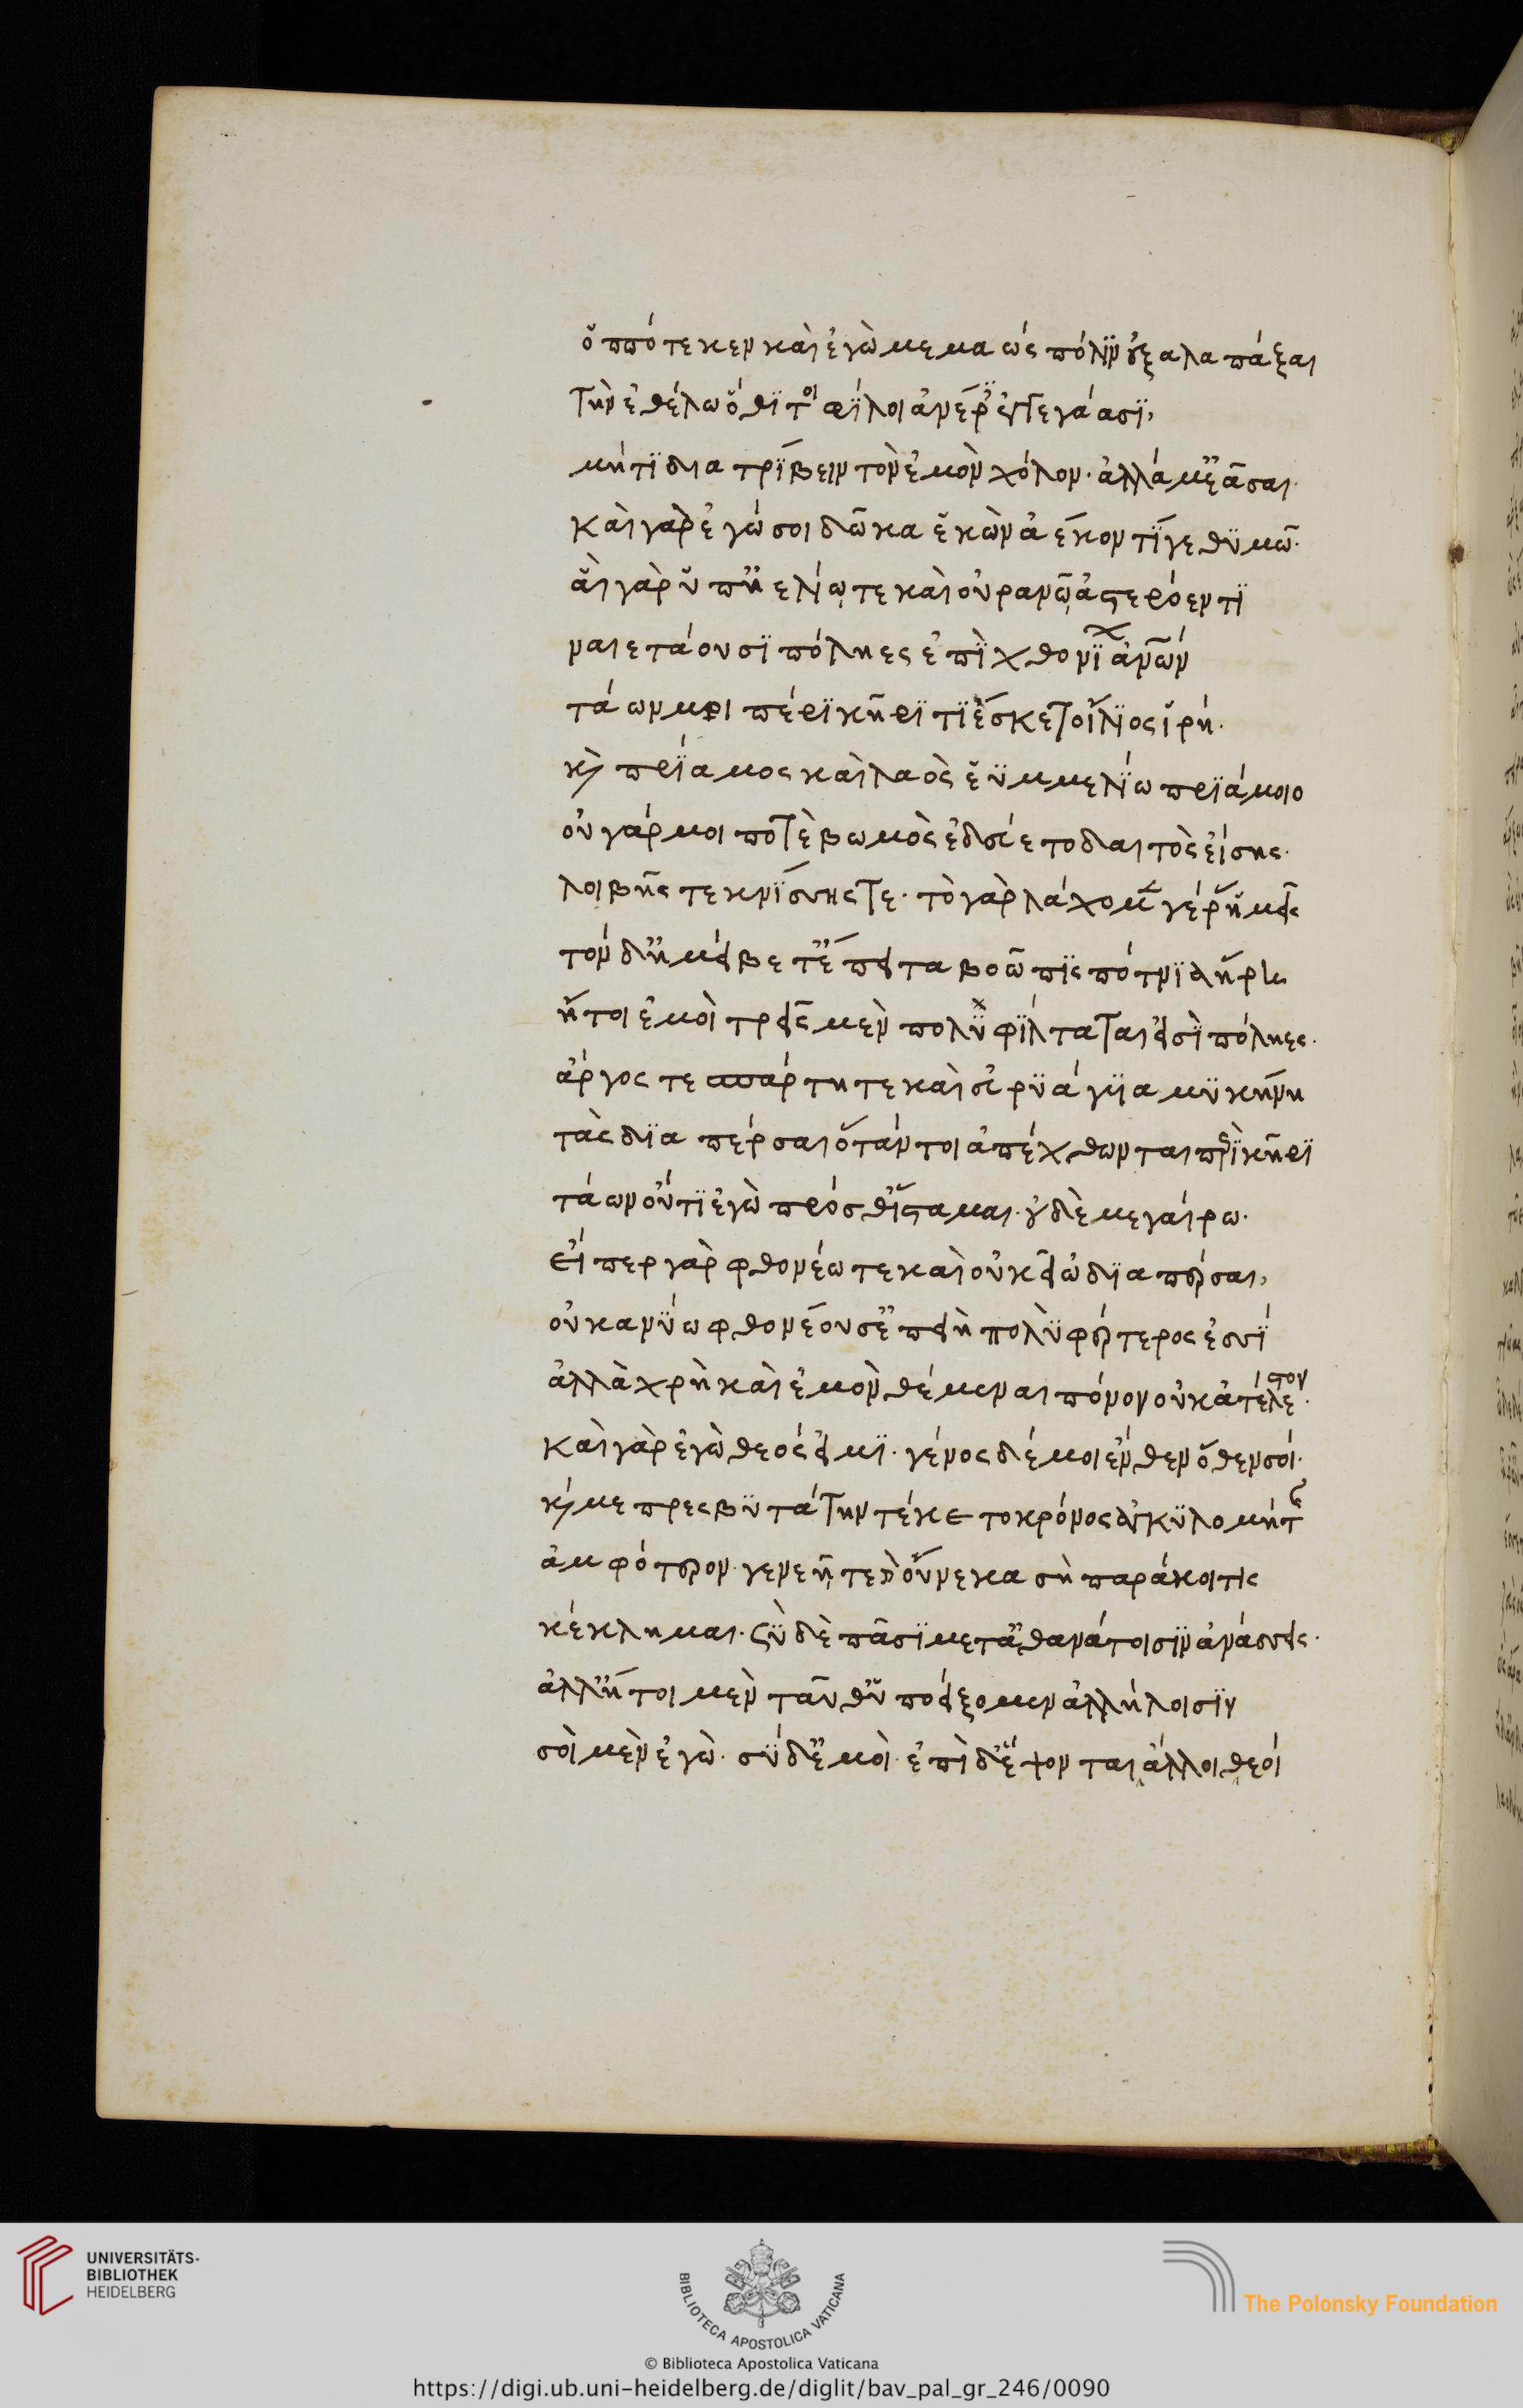 ὁππότε κεν καὶ ἐγὼ μεμαὼς πόλϊν ἐξαλαπάξαι
τὴν ἐθέλω ὅθϊ τοι φίλοι ἀνέρες ἐγγεγάασϊ,
μήτϊ διατρίβειν τὸν ἐμὸν χόλον· ἀλλά μ' ἐᾶσαι·
καὶ γὰρ ἐγώ σοι δῶκα ἑκὼν ἀέκοντί γε θϋμῶ·
αἳ γὰρ ὑπ' ἠελίῳ τε καὶ οὐρανῷ ἀστερόεντϊ
ναιετάουσϊ πόληες ἐπϊχθονίων ἀνθρώπων
τάων μοι πέρϊ κῆρϊ τϊέσκετο Ἴλϊος ἱρή·
καὶ πρίαμος καὶ λαὸς ἐϋμμελίω πρϊάμοιο
οὐ γάρ μοι ποτὲ βωμὸς ἐδεύετο δαιτὸς ἐΐσης·
λοιβῆς τε κνίσσης τε· τὸ γὰρ λάχομεν γέρας ἡμεῖς
τὸν δ' ἠμείβετ' ἔπειτα βοῶπϊς πότνϊα ἥρη
ἤτοι ἐμοὶ τρεῖς μὲν πολὺ φίλταται εἰσὶ πόληες·
ἄργος τε σπάρτη τε καὶ εὐρϋάγϋια μϋκήνη
τὰς δϊαπέρσαι ὅτάν τοι ἀπέχθωνται περὶ κῆρϊ
τάων οὔτϊ ἐγὼ πρόσθ' ἵσταμαι· οὐδὲ μεγαίρω·
εἴπερ γὰρ φθονέω τε καὶ οὐκ εἰῶ δϊαπέρσαι,
οὐκ ἀνύω φθονέουσ' ἐπειὴ πολὺ φέρτερος ἐσσϊ
ἀλλὰ χρὴ καὶ ἐμὸν θέμεναι πόνον οὐκ ἀτέλεστον·
καὶ γὰρ ἐγὼ θεός εἰμϊ· γένος δέ μοι ἔνθεν ὅθεν σοί·
καί με πρεσβϋτάτην τέκετο κρόνος ἀγκϋλομήτης
ἀμφότερον γενεῇ τε καὶ οὕνεκα σὴ παράκοιτϊς
κέκλημαι· σὺ δὲ πᾶσϊ μετ' ἀθανάτοισϊν ἀνάσσεις·
ἀλλ' ἤτοι μὲν ταῦθ' ὑποείξομεν ἀλλήλοισϊν
σοὶ μὲν ἐγὼ· σὺ δ' ἐμοὶ· ἐπὶ δ' ἕψονται ἄλλοι θεοί
UNIVERSITÄTS-
BIBLIOTHEK
HEIDELBERG
BIBLIOTECA APOSTOLICA VATICANA
The Polonsky Foundation
© Biblioteca Apostolica Vaticana
https://digi.ub.uni-heidelberg.de/diglit/bav_pal_gr_246/0090